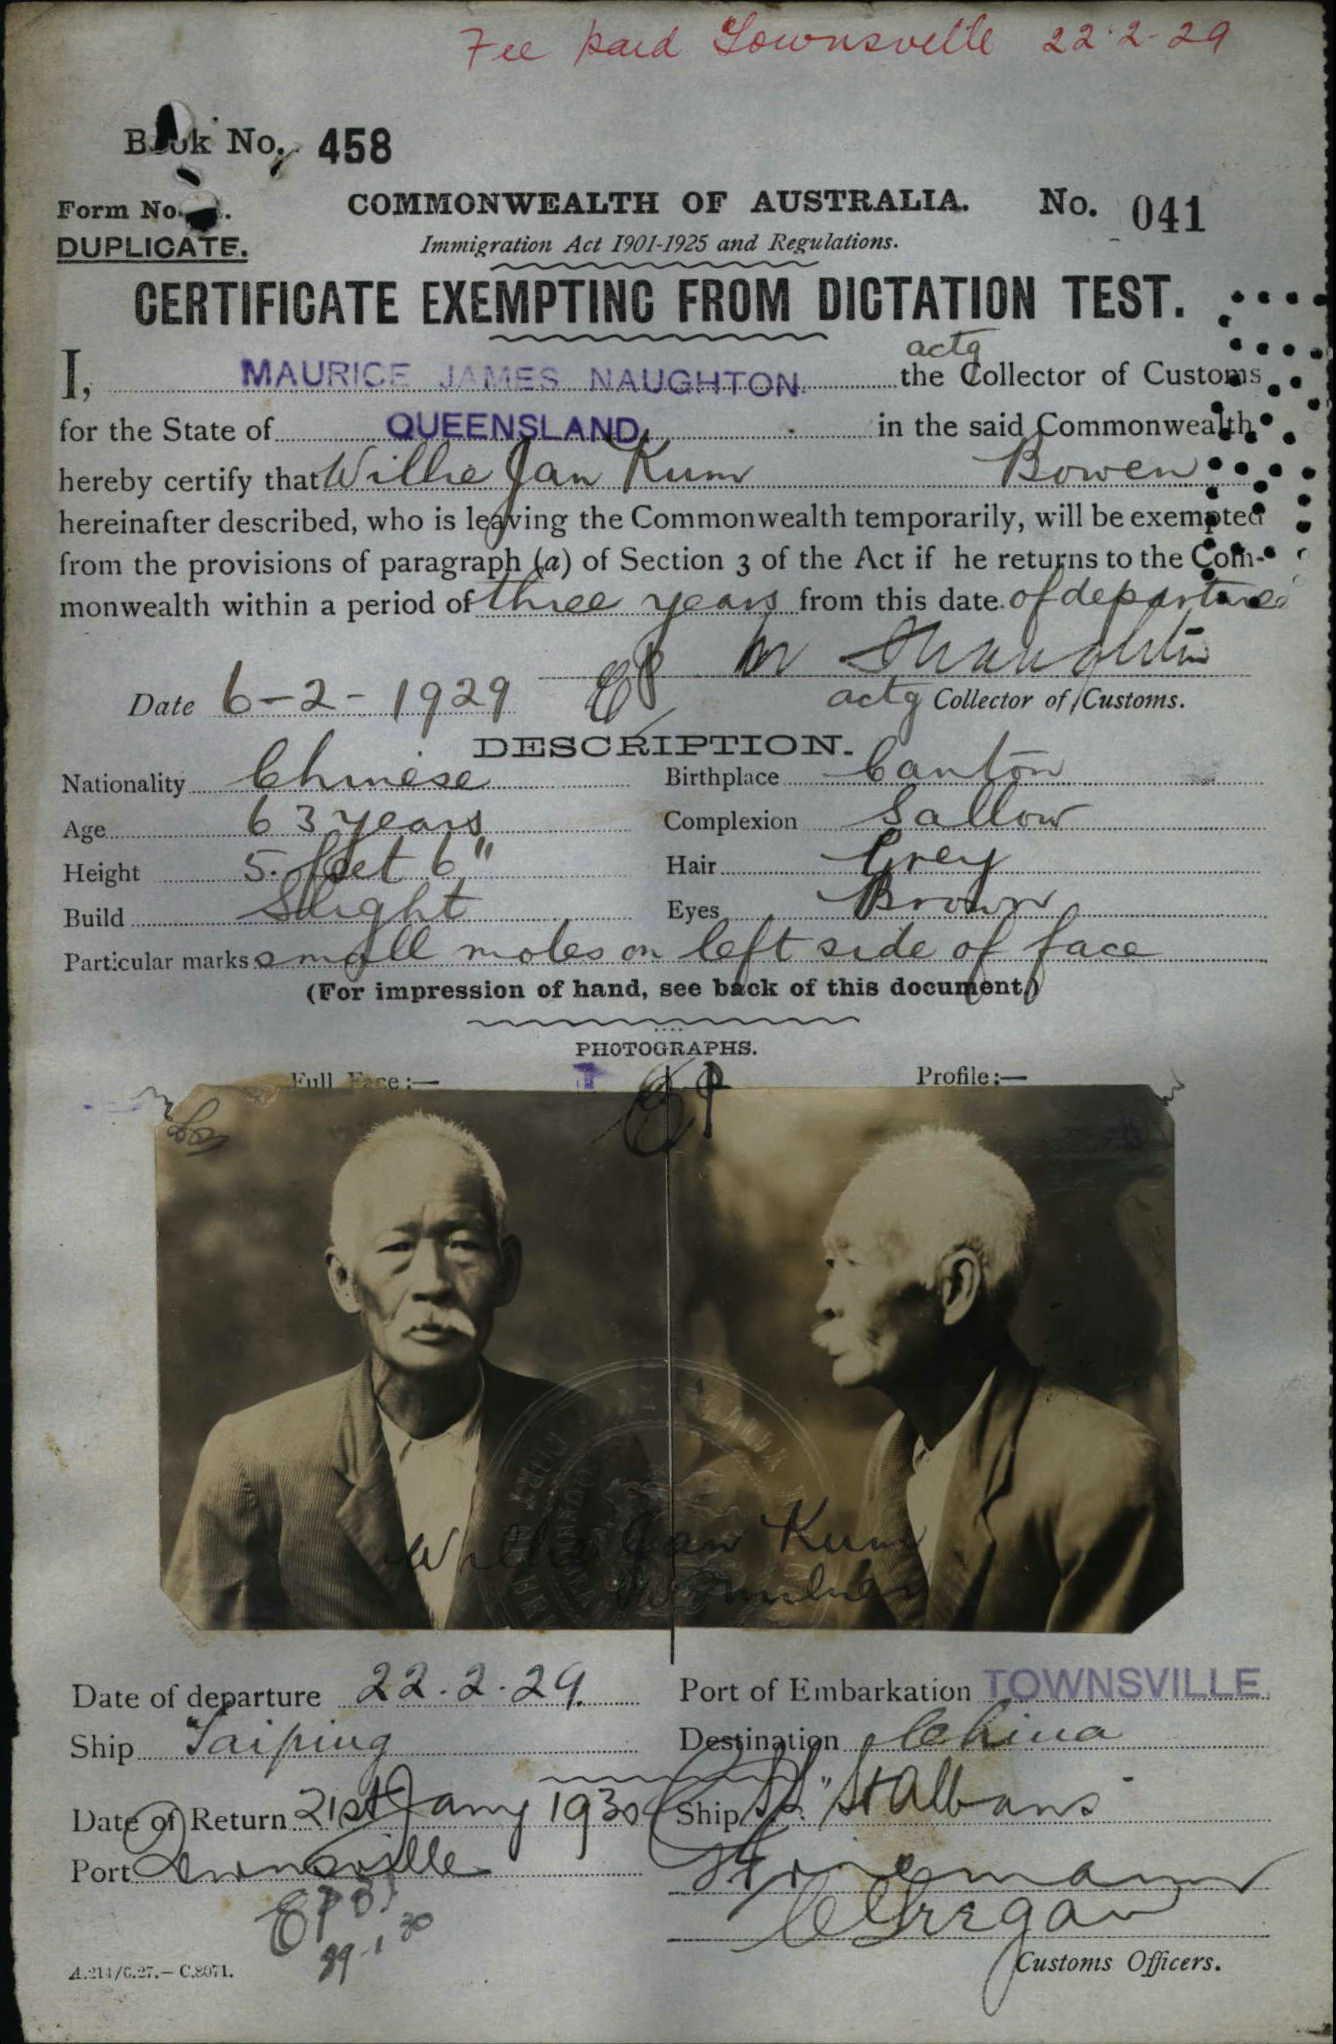 Fee paid Townsville 22-2-29
Book No. 458
Form No.
COMMONWEALTH OF AUSTRALIA. No. 041
DUPLICATE.
Immigration Act 1901-1925 and Regulations.
CERTIFICATE EXEMPTING FROM DICTATION TEST.
actg
I, MAURICE JAMES NAUGHTON the Collector of Customs
for the State of QUEENSLAND. in the said Commonwealth
hereby certify that Willie Jan Kum Bowen
hereinafter described, who is leaving the Commonwealth temporarily, will be exempted
from the provisions of paragraph (a) of Section 3 of the Act if he returns to the Com-
monwealth within a period of three years from this date of departure
EP M J Naughton
Date 6-2-1929 actg Collector of Customs.
DESCRIPTION.
Nationality Chinese Birthplace Canton
Age 63 years Complexion Sallow
Height 5. feet 6" Hair Grey
Build Slight Eyes Brown
Particular marks small moles on left side of face
(For impression of hand, see back of this document.)
PHOTOGRAPHS.
Full Face:— Profile:—
EP
Willie Jan Kum
Date of departure 22.2.29. Port of Embarkation TOWNSVILLE
Ship Taiping Destination China
Date of Return 21st Jany 1930 Ship SS "St Albans"
Port Townsville
EP
29-1-30
Customs Officers.
A.214/6.27.—C.8071.